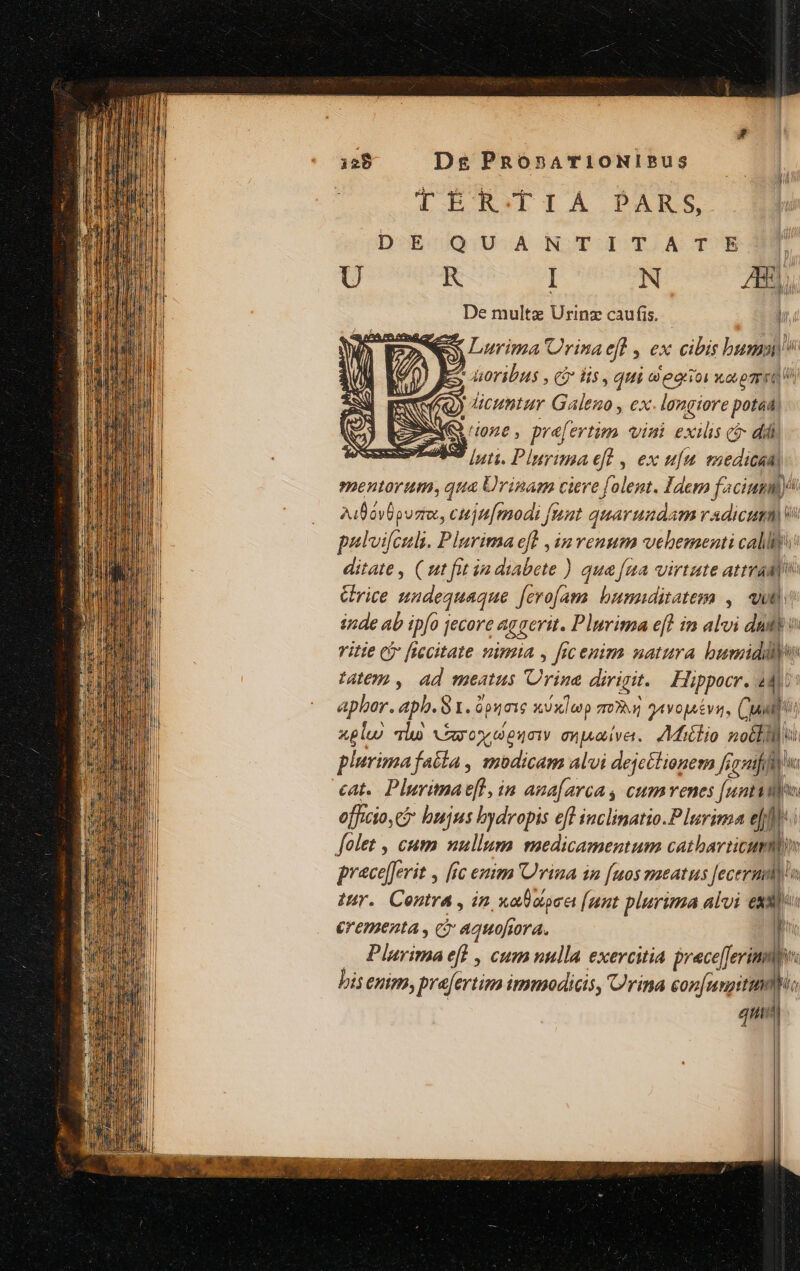 128 DE PROBATIONIBUS
TERTIA PARS,
DE QUANTITATE
URINÆ.
De multæ Urinæ causis.
Plurima Urina est, ex cibis humi-
dioribus, & iis, qui ὡραῖοι καρποὶ
dicuntur Galeno, ex longiore potatione,
præsertim vini exilis & di-
luti. Plurima est, ex usu medica-
mentorum, quæ Urinam ciere solent. Idem faciunt
λιθόνθρυπτα, cujusmodi sunt quarundam radicum
pulvisculi. Plurima est, in renum vehementi cali-
ditate, (ut fit in diabete) quæ sua virtute attra-
ctrice undequaque serosam humiditatem,
inde ab ipso jecore aggerit. Plurima est in alvi du-
ritie & siccitate nimia, sic enim natura humidi-
tatem, ad meatus Urinæ dirigit. Hippocr. 4.
aphor. aph. 81. ὄρησις νύκτωρ πολλὴ γινομένη, σμι-
κρὴν τὴν ὑποχώρησιν σημαίνει. Mictio noctu
plurima facta, modicam alvi dejectionem signifi-
cat. Plurima est, in anasarca, cum renes sunt in
officio, & hujus hydropis est inclinatio. Plurima esse
solet, cum nullum medicamentum catharticum
præcesserit, sic enim Urina in suos meatus
tur. Contra, in καθάρσει sunt plurima alvi ex-
crementa, & aquosiora.
Plurima est, cum nulla exercitia præcesserint,
his enim, præsertim immodicis, Urina consumitur